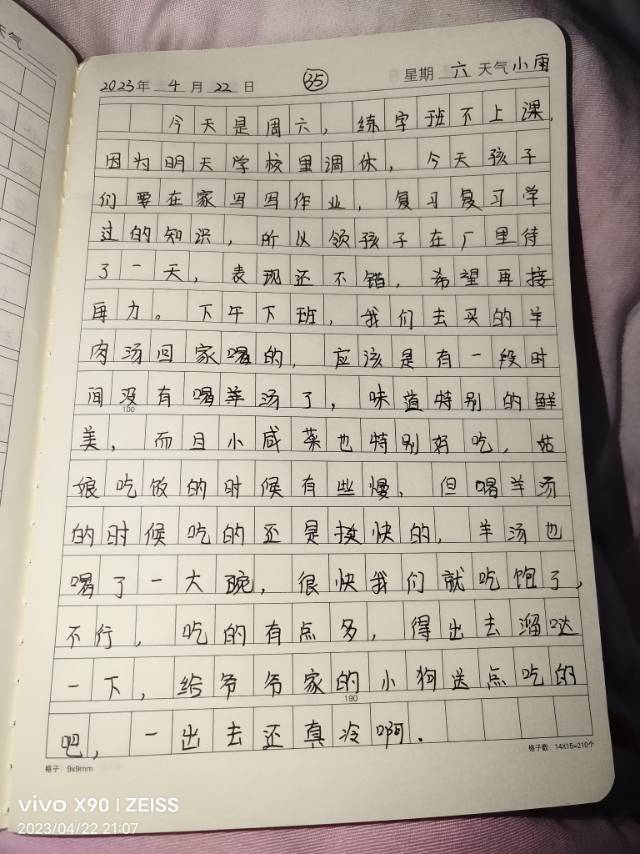 天气
2023年 4 月 22 日 35 星期 六 天气 小雨
今天是周六，练字班不上课，
因为明天学校里调休，今天孩子
们要在家写写作业，复习复习学
过的知识，所以领孩子在厂里待
了一天，表现还不错，希望再接
再力。下午下班，我们去买的羊
肉汤回家喝的，应该是有一段时
间没有喝羊汤了，味道特别的鲜
100
美，而且小咸菜也特别好吃，姑
娘吃饭的时候有些慢，但喝羊汤
的时候吃的还是挺快的，羊汤也
喝了一大碗，很快我们就吃饱了，
不行，吃的有点多，得出去溜哒
一下，给爷爷家的小狗送点吃的
180
吧，一出去还真冷啊.
格子：9x9mm 格子数：14X15=210个
vivo X90 | ZEISS
2023/04/22 21:07